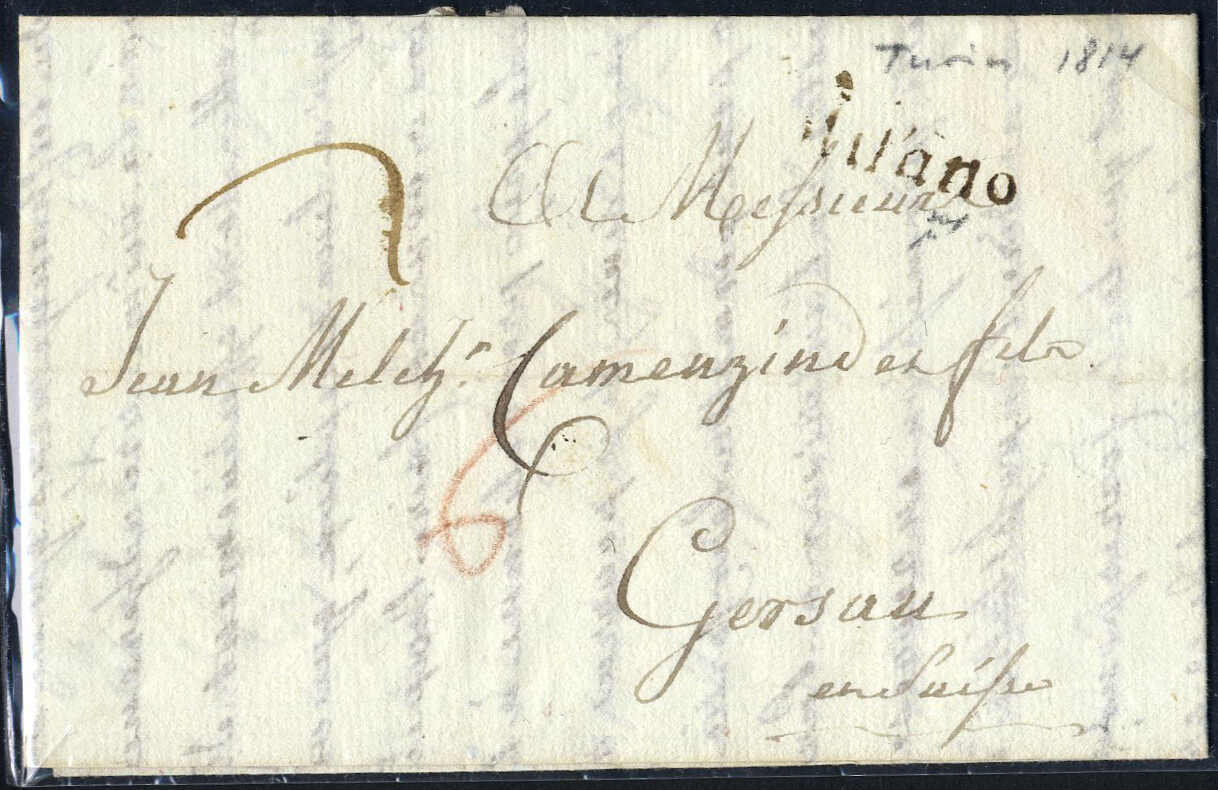 Turin 1814
Milano
A Messieurs
Jean Melch.r Camenzind et fils
6
Gersau
en Suisse